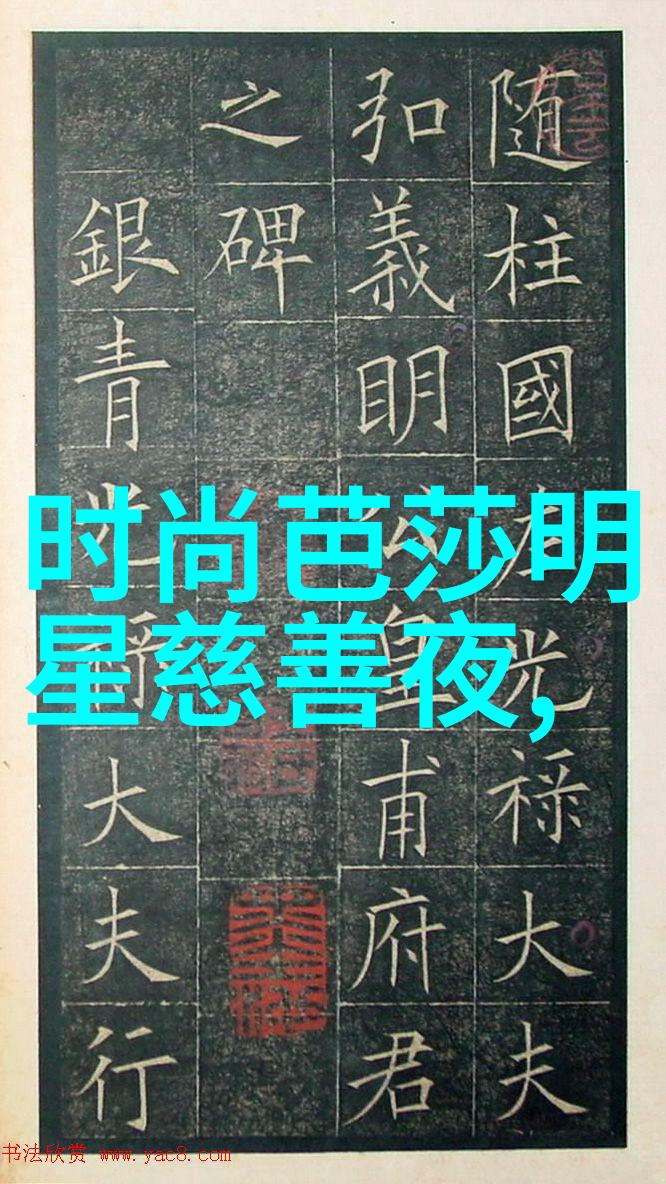 随柱國左光禄大夫
弘義眀公皇甫府君
之碑
銀青光禄大夫行
时尚芭莎明
星慈善夜,
书法欣赏 www.yac8.com